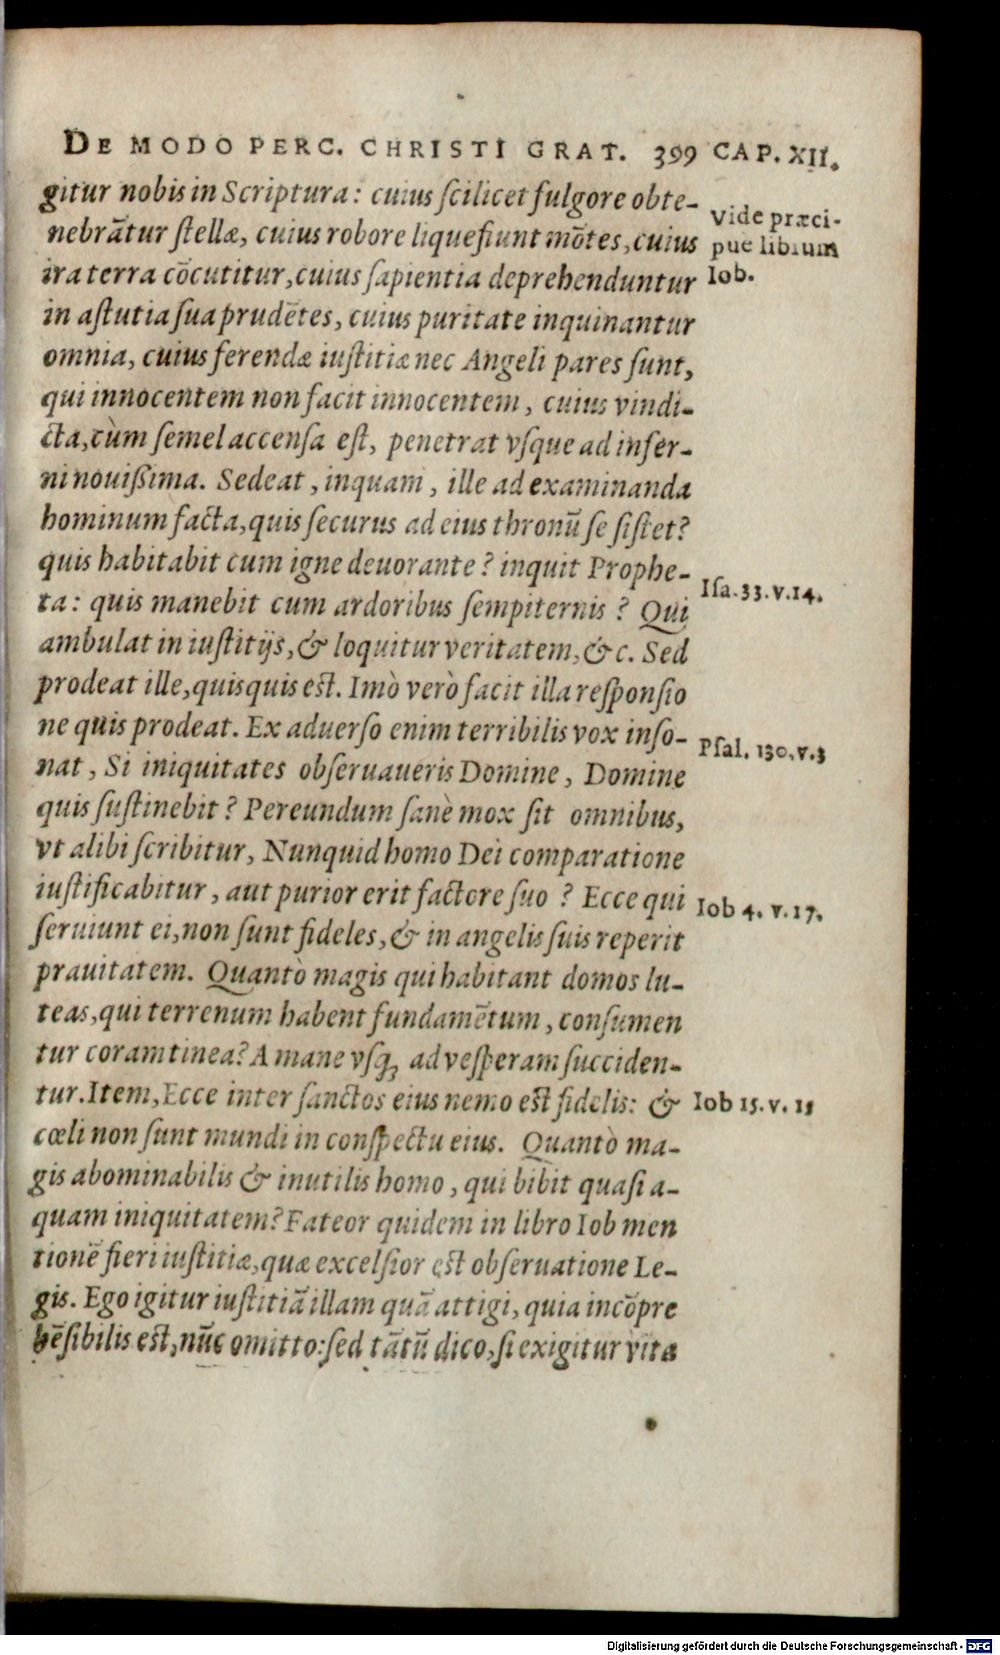 DE MODO PERC. CHRISTI GRAT. 399 CAP. XII.
gitur nobis in Scriptura: cuius ſcilicet fulgore obte-
nebrātur ſtellæ, cuius robore liquefiunt mōtes, cuius
ira terra cōcutitur, cuius ſapientia deprehenduntur
in aſtutia ſua prudētes, cuius puritate inquinantur
omnia, cuius ferendæ iuſtitiæ nec Angeli pares ſunt,
qui innocentem non facit innocentem, cuius vindi-
cta, cùm ſemel accenſa eſt, penetrat vſque ad infer-
ni nouißima. Sedeat, inquam, ille ad examinanda
hominum facta, quis ſecurus ad eius thronū ſe ſiſtet?
quis habitabit cum igne deuorante? inquit Prophe-
ta: quis manebit cum ardoribus ſempiternis? Qui
ambulat in iuſtitijs, & loquitur veritatem, &c. Sed
prodeat ille, quisquis eſt. Imò verò facit illa reſponſio
ne quis prodeat. Ex aduerſo enim terribilis vox inſo-
nat, Si iniquitates obſeruaueris Domine, Domine
quis ſuſtinebit? Pereundum ſanè mox ſit omnibus,
vt alibi ſcribitur, Nunquid homo Dei comparatione
iuſtificabitur, aut purior erit factore ſuo? Ecce qui
ſeruiunt ei, non ſunt fideles, & in angelis ſuis reperit
prauitatem. Quantò magis qui habitant domos lu-
teas, qui terrenum habent fundamētum, conſumen
tur coram tinea? A mane vſq; ad veſperam ſucciden-
tur. Item, Ecce inter ſanctos eius nemo eſt fidelis: &
cœli non ſunt mundi in conſpectu eius. Quantò ma-
gis abominabilis & inutilis homo, qui bibit quaſi a-
quam iniquitatem? Fateor quidem in libro Iob men
tionē fieri iuſtitiæ, quæ excelſior eſt obſeruatione Le-
gis. Ego igitur iuſtitiā illam quā attigi, quia incōpre
hēſibilis eſt, nūc omitto: ſed tātū dico, ſi exigitur vita
Vide præci-
pue librum
Iob.
Iſa. 33. v. 14.
Pſal. 130. v. 3
Iob 4. v. 17.
Iob 15. v. 15
Digitalisierung gefördert durch die Deutsche Forschungsgemeinschaft - DFG